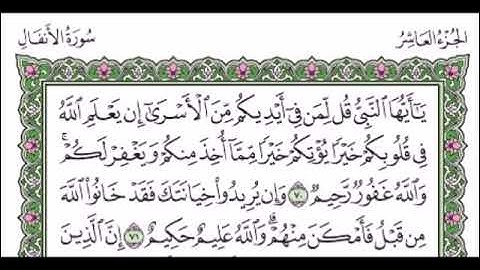 الجزء العاشر
سورة الأنفال
يَـٰٓأَيُّهَا ٱلنَّبِىُّ قُل لِّمَن فِىٓ أَيْدِيكُم مِّنَ ٱلْأَسْرَىٰٓ إِن يَعْلَمِ ٱللَّهُ
فِى قُلُوبِكُمْ خَيْرًا يُؤْتِكُمْ خَيْرًا مِّمَّآ أُخِذَ مِنكُمْ وَيَغْفِرْ لَكُمْ ۗ
وَٱللَّهُ غَفُورٌ رَّحِيمٌ ٧٠ وَإِن يُرِيدُوا۟ خِيَانَتَكَ فَقَدْ خَانُوا۟ ٱللَّهَ
مِن قَبْلُ فَأَمْكَنَ مِنْهُمْ ۗ وَٱللَّهُ عَلِيمٌ حَكِيمٌ ٧١ إِنَّ ٱلَّذِينَ